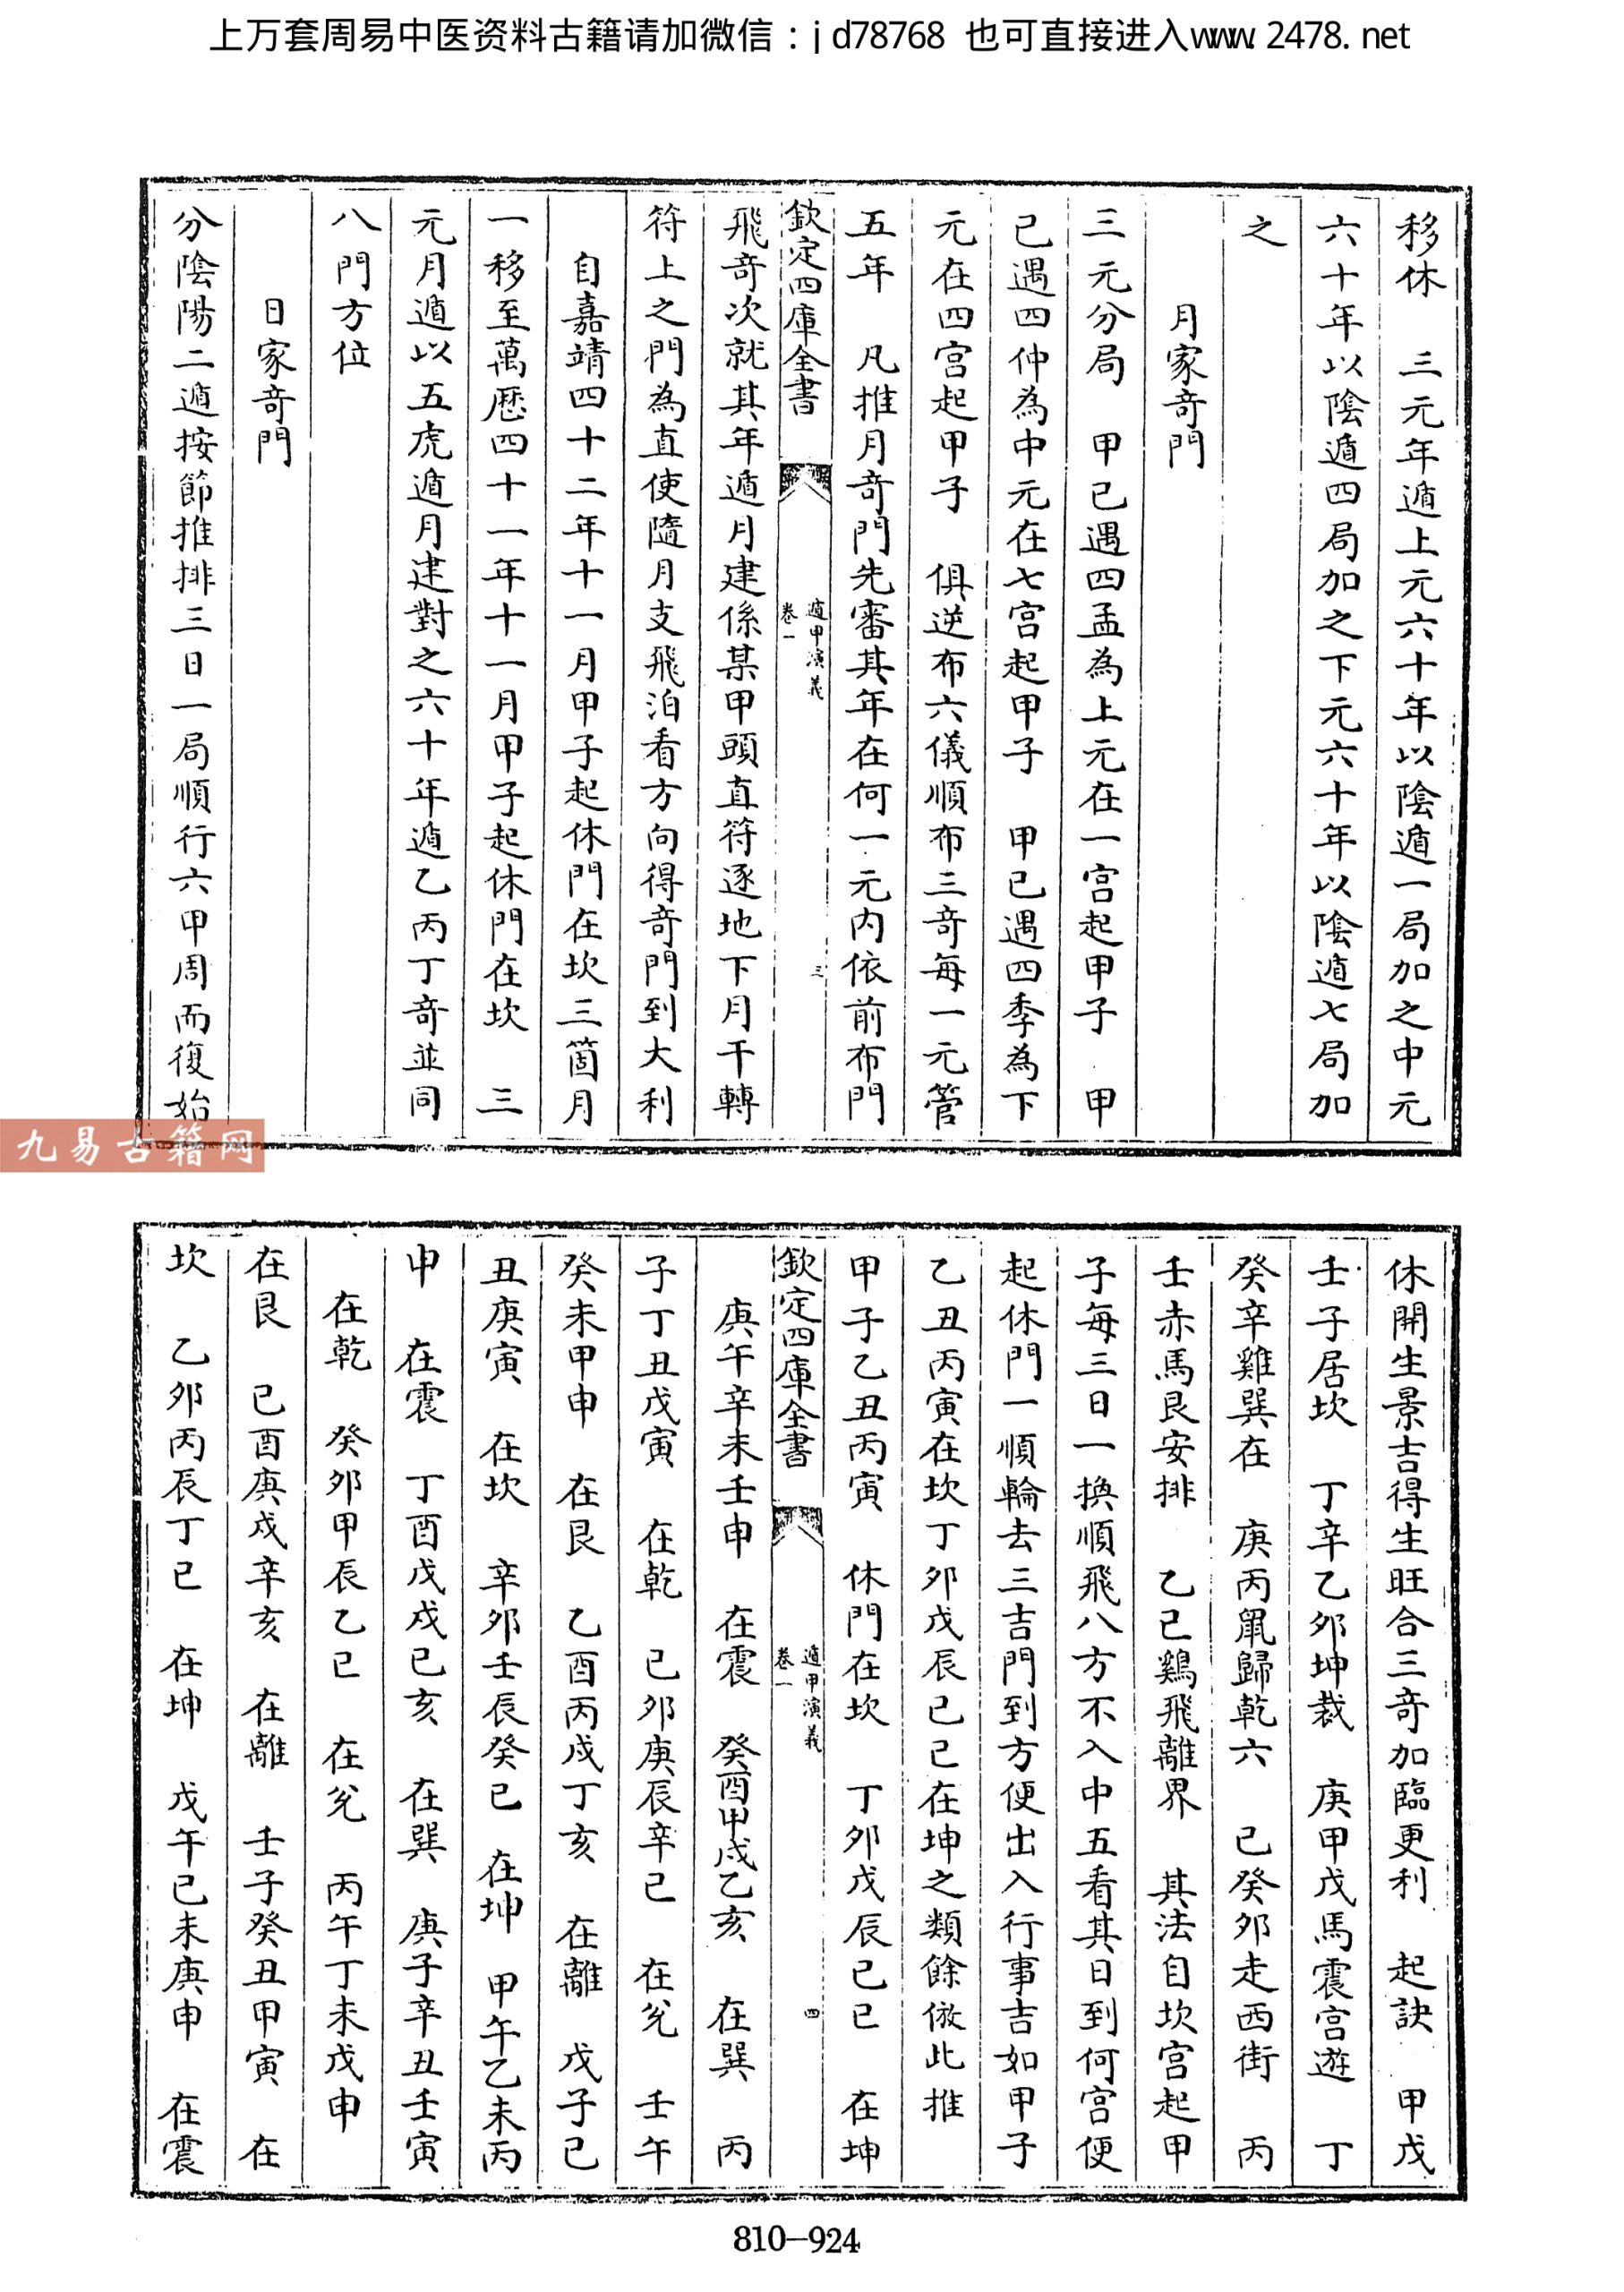 上万套周易中医资料古籍请加微信：jd78768 也可直接进入www.2478.net
移休　三元年遁上元六十年以陰遁一局加之中元
六十年以陰遁四局加之下元六十年以陰遁七局加
之
月家奇門
三元分局　甲己遇四孟為上元在一宫起甲子　甲
己遇四仲為中元在七宫起甲子　甲己遇四季為下
元在四宫起甲子　俱逆布六儀順布三奇每一元管
五年　凡推月奇門先審其年在何一元内依前布門
欽定四庫全書　遁甲演義　卷一　三
飛奇次就其年遁月建係某甲頭直符逐地下月干轉
符上之門為直使隨月支飛泊看方向得奇門到大利
自嘉靖四十二年十一月甲子起休門在坎三箇月
一移至萬厯四十一年十一月甲子起休門在坎　三
元月遁以五虎遁月建對之六十年遁乙丙丁奇並同
八門方位
日家奇門
分陰陽二遁按節推排三日一局順行六甲周而復始
九易古籍网
休開生景吉得生旺合三奇加臨更利　起訣　甲戊
壬子居坎　丁辛乙夘坤裁　庚甲戊馬震宫遊　丁
癸辛雞巽在　庚丙鼠歸乾六　己癸夘走西街　丙
壬赤馬艮安排　乙己鷄飛離界　其法自坎宫起甲
子每三日一換順飛八方不入中五看其日到何宫便
起休門一順輪去三吉門到方便出入行事吉如甲子
乙丑丙寅在坎丁夘戊辰己巳在坤之類餘倣此推
甲子乙丑丙寅　休門在坎　丁夘戊辰己巳　在坤
欽定四庫全書　遁甲演義　卷一　四
庚午辛未壬申　在震　癸酉甲戌乙亥　在巽　丙
子丁丑戊寅　在乾　己夘庚辰辛巳　在兊　壬午
癸未甲申　在艮　乙酉丙戌丁亥　在離　戊子己
丑庚寅　在坎　辛夘壬辰癸巳　在坤　甲午乙未丙
申　在震　丁酉戊戌己亥　在巽　庚子辛丑壬寅
在乾　癸夘甲辰乙巳　在兊　丙午丁未戊申
在艮　己酉庚戌辛亥　在離　壬子癸丑甲寅　在
坎　乙夘丙辰丁巳　在坤　戊午己未庚申　在震
810-924